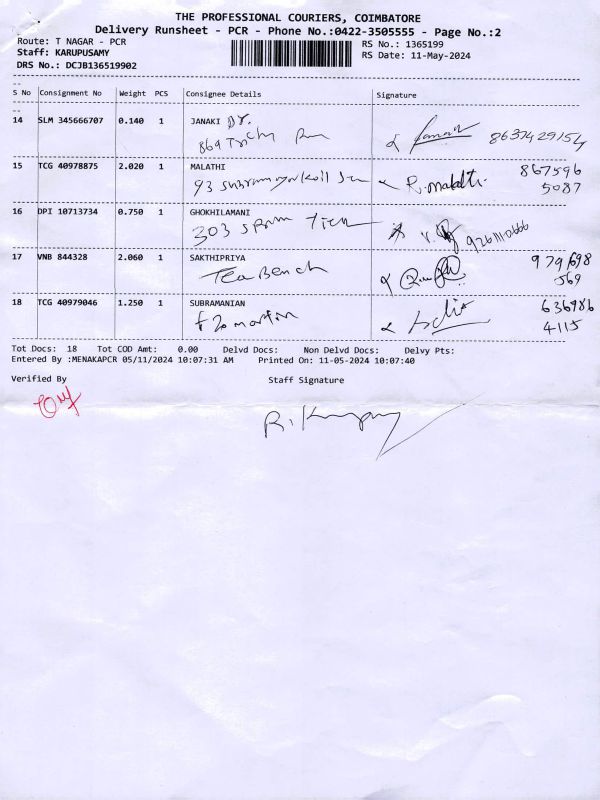 THE PROFESSIONAL COURIERS, COIMBATORE
Delivery Runsheet - PCR - Phone No.:0422-3505555 - Page No.:2
Route: T NAGAR - PCR
RS No.: 1365199
Staff: KARUPUSAMY
RS Date: 11-May-2024
DRS No.: DCJB136519902
S No Consignment No Weight PCS Consignee Details Signature
14 SLM 345666707 0.140 1 JANAKI Dr.
869 Trichy
8637429154
15 TCG 40978875 2.020 1 MALATHI
93 R. Malathi 867596
5087
16 DPI 10713734 0.750 1 GHOKHILAMANI
303
17 VNB 844328 2.060 1 SAKTHIPRIYA
Tea Bench
979698
569
18 TCG 40979046 1.250 1 SUBRAMANIAN
f 20 martin
636986
4115
Tot Docs: 18 Tot COD Amt: 0.00 Delvd Docs: Non Delvd Docs: Delvy Pts:
Entered By :MENAKAPCR 05/11/2024 10:07:31 AM Printed On: 11-05-2024 10:07:40
Verified By Staff Signature